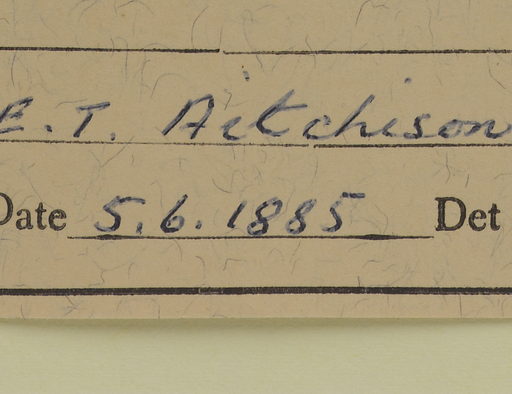 E. T. Aitchison
Date 5.6.1885 Det